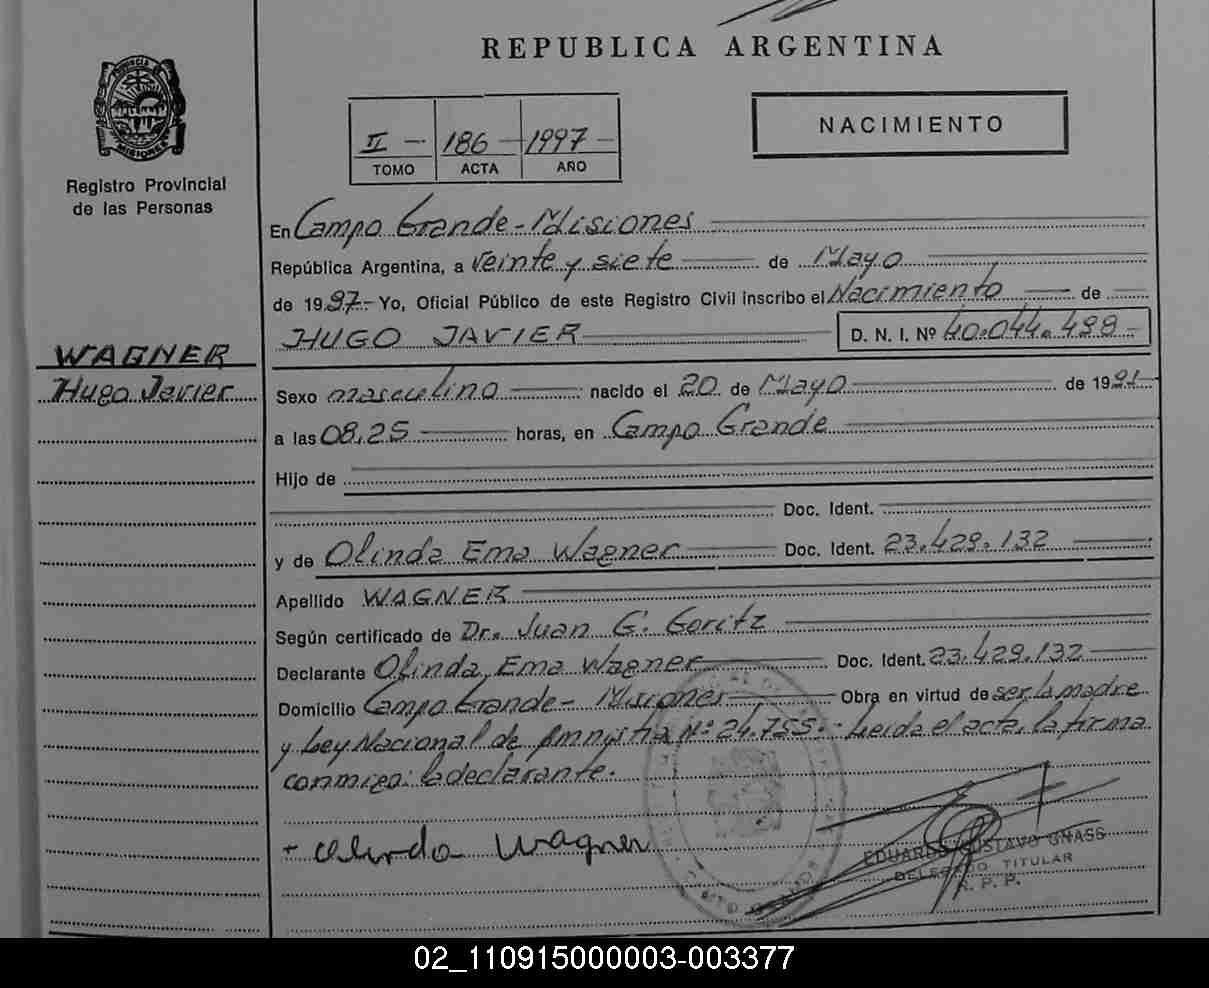 REPUBLICA ARGENTINA
PROVINCIA DE
MISIONES
Registro Provincial
de las Personas
II - 186 - 1997 -
TOMO ACTA AÑO
NACIMIENTO
En Campo Grande - Misiones
República Argentina, a veinte y siete de Mayo
de 1997.- Yo, Oficial Público de este Registro Civil inscribo el Nacimiento de
HUGO JAVIER D. N. I. Nº 40.044.499-
WAGNER
Hugo Javier
Sexo masculino nacido el 20 de Mayo de 1991-
a las 08,25 horas, en Campo Grande
Hijo de
Doc. Ident.
y de Olinda Ema Wagner Doc. Ident. 23.429.132
Apellido WAGNER
Según certificado de Dr. Juan G. Goritz
Declarante Olinda Ema Wagner Doc. Ident. 23.429.132
Domicilio Campo Grande - Misiones Obra en virtud de ser la madre
y Ley Nacional de Amnystia Nº 24.755.- Leida el acta, la firma
conmigo: la declarante.
Olinda Wagner
EDUARDO GUSTAVO GNASS
DELEGADO TITULAR
R. P. P.
02_110915000003-003377